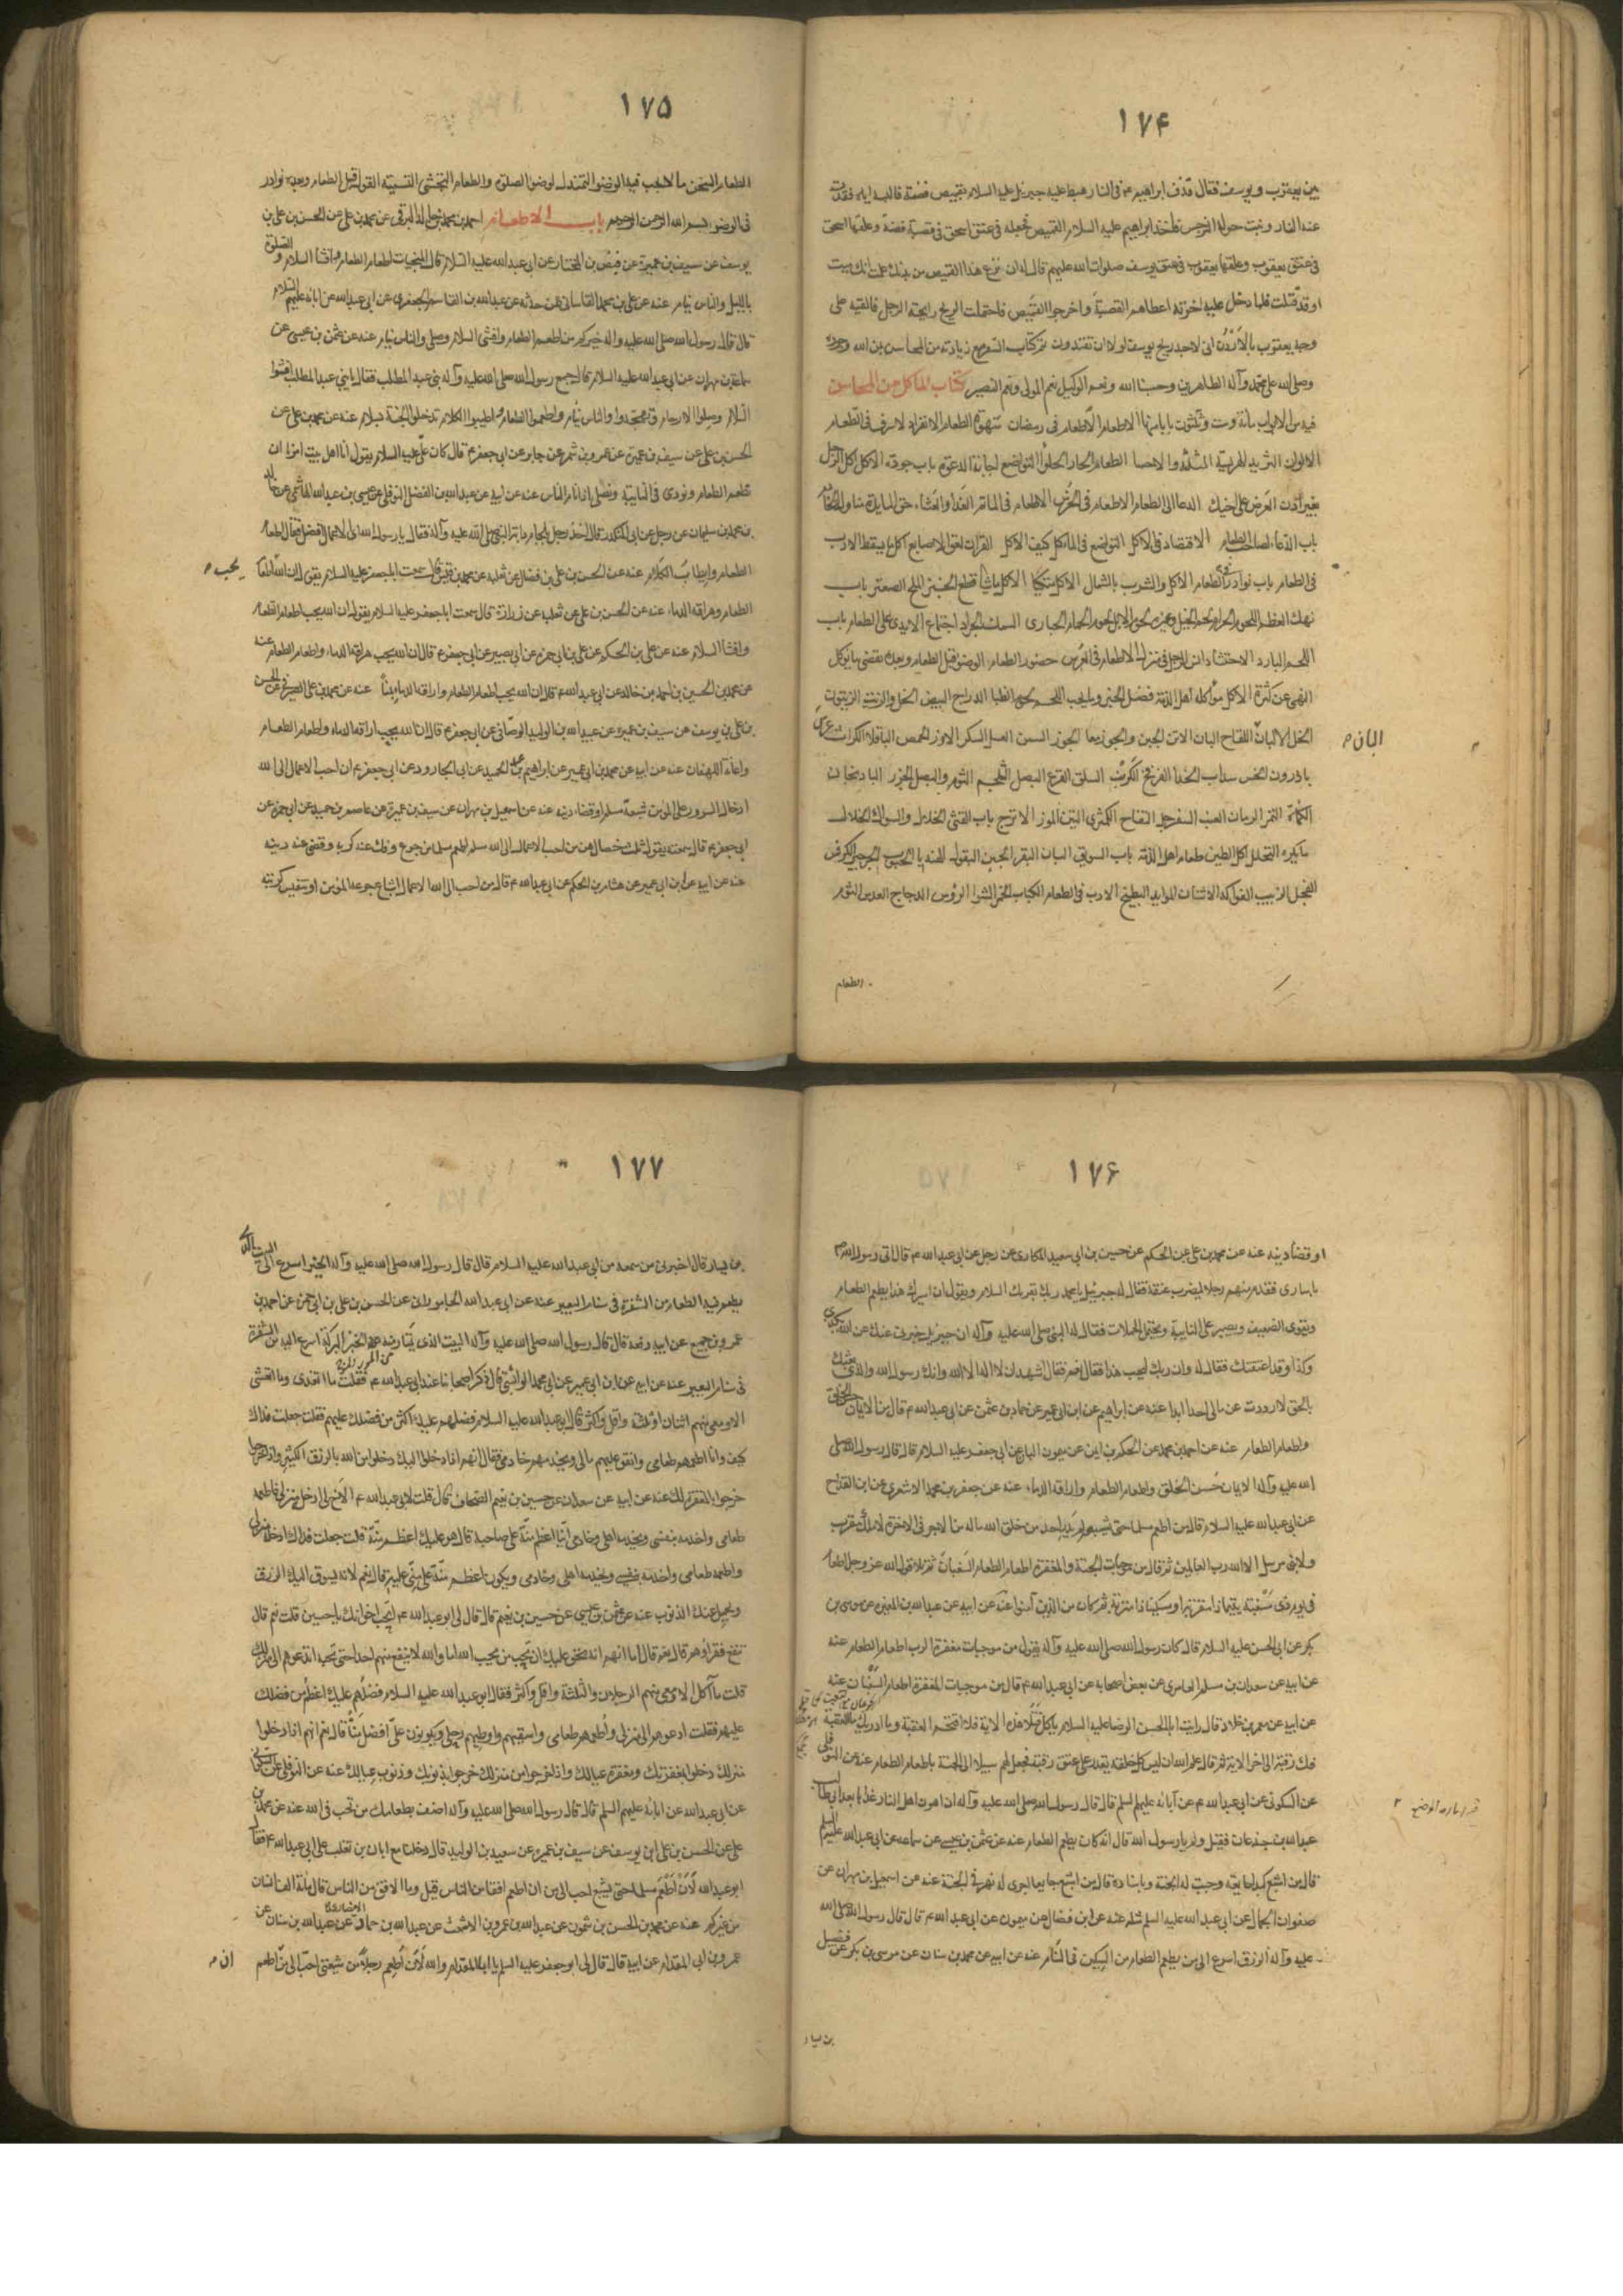 ١٧۴
بين يعقوب ويوسف فقال قذف ابراهيم ع في النار هبط عليه جبرئيل عليه السلام بقميص فضة فالبسه اياه ففرت
عنه النار ونبت حوله النرجس فاخذ ابراهيم عليه السلام القميص فجعله في عنق اسحق في قصبة فضة وعلقها اسحق
في عنق يعقوب وعلقها يعقوب في عنق يوسف صلوات الله عليهم قال له ان نزع هذا القميص من بدنك علمت انك ميت
او قد قتلت فلما دخل عليه اخوته اعطاهم القصبة واخرجوا القميص فاحتملت الريح رايحته الرجل فالقيه على
وجه يعقوب بالاردن اني لاجد ريح يوسف لولا ان تفندون تم كتاب السفر مع زيادته من المحاسن بمن الله وجوده
وصلى الله على محمد وآله الطاهرين وحسبنا الله ونعم الوكيل نعم المولى ونعم النصير كتاب الماكل من المحاسن
فيه من الابواب مائة وست وثلثون بابا منها الاطعام الاطعام في رمضان شهوة الطعام الانفراد لاسرف في الطعام
الالوان الثريد الهريسة المثلثة والاحسا الطعام الحار الحلوا التواضع اجابة الدعوة باب جودة الاكل اكل الرجل
بغير اذن العرض على اخيك الدعا الى الطعام الاطعام في الخرس الاطعام في الماتم الغدا والعشاء حق المايدة مناولة الخادم
باب الدعاء لصاحب الطعام الاقتصاد في الاكل التواضع في الماكل كيف الاكل القران لعق الاصابع اكل ما يسقط الادب
في الطعام باب نوادر في الطعام الاكل والشرب بالشمال الاكل متكيا الاكل ماشيا قطع الخبز الملح الصعتر باب
نهك العظم اللحوم الحرام لحم الخيل وغيره لحوم الابل لحوم الحمام الحبارى السمك الجراد اجتماع الايدي على الطعام باب
اللحم البارد الاحتشاد انس الرجل في منزله الاطعام في العرس حضور الطعام الوضو قبل الطعام وبعده تقصي ما يوكل
النهي عن كثرة الاكل مؤاكلة اهل الذمة فضل الخبز وما يجب اللحم لحم الظبا الدراج البيض الخل والزيت الزيتون
الخل الالبان اللقاح البان الاتن الجبن والجوز معا الجوز السمن العسل السكر الارز الحمص الباقلا الكراث
البان م
باذروج الخس سداب الحندا الفرفخ الكرنب السلق القرع البصل الشلجم الثوم والبصل الجزر الباذنجان
الكماة التمر الرمان العنب السفرجل التفاح الكمثرى التين الموز الاترج باب القثى الخلال والسواك الخلال
ما يكره التخلل اكل الطين طعام اهل الذمة باب السويق البان البقر الجبن البقول الهندبا الجرجير الكرفس
الفجل الزبيب الفواكه الاشنان الموايد البطيخ الادب في الطعام الكباب الخمر الشوا الرؤس الدجاج العدس الثوم
الطعام
١٧۵
الطعام السخن ما لا يجب فيه الوضو التمندل لوضو الصلوة والطعام التجشى التسمية القول قبل الطعام وبعده نوادر
في الوضو بسم الله الرحمن الرحيم باب الاطعام احمد بن محمد بن خالد البرقي عن محمد بن علي عن الحسن بن علي بن
يوسف عن سيف بن عميرة عن فيض بن المختار عن ابي عبد الله عليه السلام قال المنجيات اطعام الطعام وافشا السلام والصلوة
بالليل والناس نيام عنه عن علي بن محمد القاساني عمن حدثه عن عبد الله بن القاسم الجعفري عن ابي عبد الله عن ابائه عليهم السلام
قال قال رسول الله صلى الله عليه واله خيركم من اطعم الطعام وافشى السلام وصلى والناس نيام عنه عن عثمن بن عيسى عن
سماعة بن مهران عن ابي عبد الله عليه السلام قال جمع رسول الله صلى الله عليه وآله بني عبد المطلب فقال يا بني عبد المطلب افشوا
السلام وصلوا الارحام وتهجدوا والناس نيام واطعموا الطعام واطيبوا الكلام تدخلوا الجنة بسلام عنه عن محمد بن علي عن
الحسن بن علي عن سيف بن عميرة عن عمرو بن شمر عن جابر عن ابي جعفر ع قال كان علي عليه السلام يقول انا اهل بيت امرنا ان
نطعم الطعام ونودي في النايبة ونصلي اذا نام الناس عنه عن ابيه عن عبد الله بن الفضل النوفلي عن عيسى بن عبد الله الهاشمي عن خالد
بن محمد بن سليمان عن رجل عن ابي المنكدر قال اخذ رجل بلجام دابة النبي صلى الله عليه وآله فقال يا رسول الله اي الاعمال افضل فقال اطعام
الطعام واطياب الكلام عنه عن الحسن بن علي بن فضال عن ثعلبه عن محمد بن قيس قال سمعت ابا جعفر عليه السلام يقول ان الله اطعام
يحب م
الطعام وهراقة الدماء عنه عن الحسن بن علي عن ثعلب عن زرارة قال سمعت ابا جعفر عليه السلام يقول ان الله يحب اطعام الطعام
وافشا السلام عنه عن علي بن الحكم عن علي بن ابي حمزه عن ابي بصير عن ابي جعفر ع قال ان الله يحب هراقة الدماء واطعام الطعام عنه
عن محمد بن الحسين بن احمد بن خالد عن ابي عبد الله ع قال ان الله يحب اطعام الطعام واراقة الدماء بمنا عنه عن محمد بن علي الصيرفي عن الحسن
بن علي بن يوسف عن سيف بن عميره عن عبيد الله بن الوليد الوصافي عن ابي جعفر ع قال ان الله يحب اراقة الدماء واطعام الطعام
واغاثة اللهفان عنه عن ابيه عن محمد بن ابي عمير عن ابراهيم بن عبد الحميد عن ابي الجارود عن ابي جعفر ع ان احب الاعمال الى الله
ادخال السرور على المؤمن شبعة مسلم او قضاء دينه عنه عن اسمعيل بن مهران عن سيف بن عميرة عن عاصم بن حميد عن ابي حمزه عن
ابي جعفر ع قال سمعته يقول ثلث خصال هن من احب الاعمال الى الله مسلم اطعم مسلما من جوع وفك عنه كربه وقضى عنه دينه
عنه عن ابيه عن ابن ابي عمير عن هشام بن الحكم عن ابي عبد الله ع قال من احب الى الله الاعمال اشباع جوعة المؤمن او تنفيس كربته
١٧۶
او قضا دينه عنه عن محمد بن علي عن الحكم عن حسين بن ابي سعيد المكاري عن رجل عن ابي عبد الله ع قال اتى رسول الله ص
باسارى فقدم منهم رجلا ليضرب عنقه فقال له جبرئيل يا محمد ربك يقرئك السلام ويقول ان اسيرك هذا يطعم الطعام
ويقوى الضعيف ويصبر على النايبة ويحتمل الحملات فقال له النبي صلى الله عليه وآله ان جبرئيل خبرني عنك عن الله بكذى
وكذا وقد اعتقتك فقال له وان ربك ليحب هذا فقال نعم فقال اشهد ان لا اله الا الله وانك رسول الله والذي بعثك
بالحق لا رددت عن مالي احدا ابدا عنه عن ابراهيم عن ابن ابي عمير عن حماد بن عثمن عن ابي عبد الله ع قال من الايمان حسن الخلق
واطعام الطعام عنه عن احمد بن محمد عن الحكم بن ايمن عن ميمون البان عن ابي جعفر عليه السلام قال قال رسول الله صلى
الله عليه وآله الايمان حسن الخلق واطعام الطعام واراقة الدماء عنه عن جعفر بن محمد الاشعري عن ابن القداح
عن ابي عبد الله عليه السلام قال من اطعم مسلما حتى يشبعه لم يدر احد من خلق الله ما له من الاجر في الاخرة لا ملك مقرب
ولا نبي مرسل الا الله رب العالمين ثم قال من موجبات الجنة والمغفرة اطعام الطعام السغبان ثم تلا قول الله عز وجل اطعام
في يوم ذي مسغبة يتيما ذا مقربة او مسكينا ذا متربة ثم كان من الذين آمنوا عنه عن ابيه عن عبد الله بن المغيره عن موسى بن
بكر عن ابي الحسن عليه السلام قال كان رسول الله صلى الله عليه وآله يقول من موجبات مغفرة الرب اطعام الطعام عنه
عن ابيه عن سعدان بن مسلم العامري عن بعض اصحابه عن ابي عبد الله ع قال من موجبات المغفرة اطعام السغبان عنه
عن ابيه عن معمر بن خلاد قال رايت ابا الحسن الرضا عليه السلام ياكل فتلا هذه الاية فلا اقتحم العقبة وما ادريك ما العقبة
فك رقبة الى اخر الاية ثم قال علم الله ان ليس كل خلقه يقدر على عتق رقبة فجعل لهم سبيلا الى الجنة باطعام الطعام عنه عن النوفلي
عن السكوني عن ابي عبد الله ع عن آبائه عليهم السلم قال قال رسول الله صلى الله عليه وآله ان اهون اهل النار عذابا
عبد الله بن جذعان فقيل ولم يا رسول الله قال انه كان يطعم الطعام عنه عن عثمن بن عيسى عن سماعة عن ابي عبد الله عليه السلم
قال من اشبع كبدا جايعة وجبت له الجنة وباسناده قال من اشبع جايعا اجرى له نهر في الجنة عنه عن اسمعيل بن مهران عن
صفوان الجمال عن ابي عبد الله عليه السلم مثله عنه عن ابن فضال عن ميمون عن ابي عبد الله ع قال قال رسول الله صلى الله
عليه وآله الرزق اسرع الى من يطعم الطعام من السكين في السنام عنه عن ابيه عن محمد بن سنان عن موسى بن بكر عن فضيل
بن يسار
١٧٧
بن يسار قال اخبرني من سمعه من ابي عبد الله عليه السلام قال قال رسول الله صلى الله عليه وآله الخير اسرع الى البيت الذي
يطعم فيه الطعام من الشفرة في سنام البعير عنه عن ابي عبد الله الجاموراني عن الحسن بن علي بن ابي حمزه عن احمد بن
عمرو بن جميع عن ابيه رفعه قال قال رسول الله صلى الله عليه وآله البيت الذي يمتار منه الخبز البركة اسرع اليه من الشفرة
في سنام البعير عنه عن ابيه عن ابن ابي عمير عن ابي محمد الوابشي قال ذكر اصحابنا عند ابي عبد الله ع فقلت ما اتغدى وما اتعشى
الا ومعي منهم اثنان او ثلثة واقل واكثر قال ابو عبد الله عليه السلام فضلهم عليك اكثر من فضلك عليهم فقلت جعلت فداك
كيف وانا اطعمهم طعامي وانفق عليهم مالي ويخدمهم خادمي فقال انهم اذا دخلوا اليك دخلوا من الله بالرزق الكثير واذا خرجوا
خرجوا بالمغفرة لك عنه عن ابيه عن سعدان عن حسين بن نعيم الصحاف قال قلت لابي عبد الله ع الاخ لي ادخل منزلي فاطعمه
طعامي واخدمه بنفسي ويخدمه اهلي وخادمي اينا اعظم منة على صاحبه قال هو عليك اعظم منة قلت جعلت فداك ادخله منزلي
واطعمه طعامي واخدمه بنفسي ويخدمه اهلي وخادمي ويكون اعظم منة علي مني عليه قال نعم لانه يسوق اليك الرزق
ويحمل عنك الذنوب عنه عن عثمن بن عيسى عن حسين بن نعيم قال قال لي ابو عبد الله ع اتحب اخوانك يا حسين قلت نعم قال
تنفع فقراءهم قال نعم قال اما انهم انه يحق عليك ان تحب من يحب الله اما والله لا ينفع منهم احدا حتى تحبه اتدعوهم الى منزلك
قلت ما آكل الا ومعي منهم الرجلان والثلثة واقل واكثر فقال ابو عبد الله عليه السلام فضلهم عليك اعظم من فضلك
عليهم فقلت ادعوهم الى منزلي واطعمهم طعامي واسقيهم واوطيهم رحلي ويكونون علي افضل منا قال نعم انهم اذا دخلوا
منزلك دخلوا بمغفرتك ومغفرة عيالك واذا خرجوا من منزلك خرجوا بذنوبك وذنوب عيالك عنه عن النوفلي عن السكوني
عن ابي عبد الله عن ابائه عليهم السلم قال قال رسول الله صلى الله عليه وآله اضف بطعامك من تحب في الله عنه عن محمد بن
علي عن الحسن بن علي ابن يوسف عن سيف بن عميره عن سعيد بن الوليد قال دخلت مع ابان بن تغلب على ابي عبد الله ع فقال
ابو عبد الله لان اطعم مسلما حتى يشبع احب الي من ان اطعم افقا من الناس قيل وما الافق من الناس قال مائة الف انسان
من غيركم عنه عن محمد بن الحسن بن شمون عن عبد الله بن عمرو بن الاشعث عن عبد الله بن حماد عن عبد الله بن سنان عن
عمرو بن ابي المقدام عن ابيه قال قال لي ابو جعفر عليه السلم يا ابا المقدام والله لان اطعم رجلا من شيعتي احب الي من اطعم
ان م